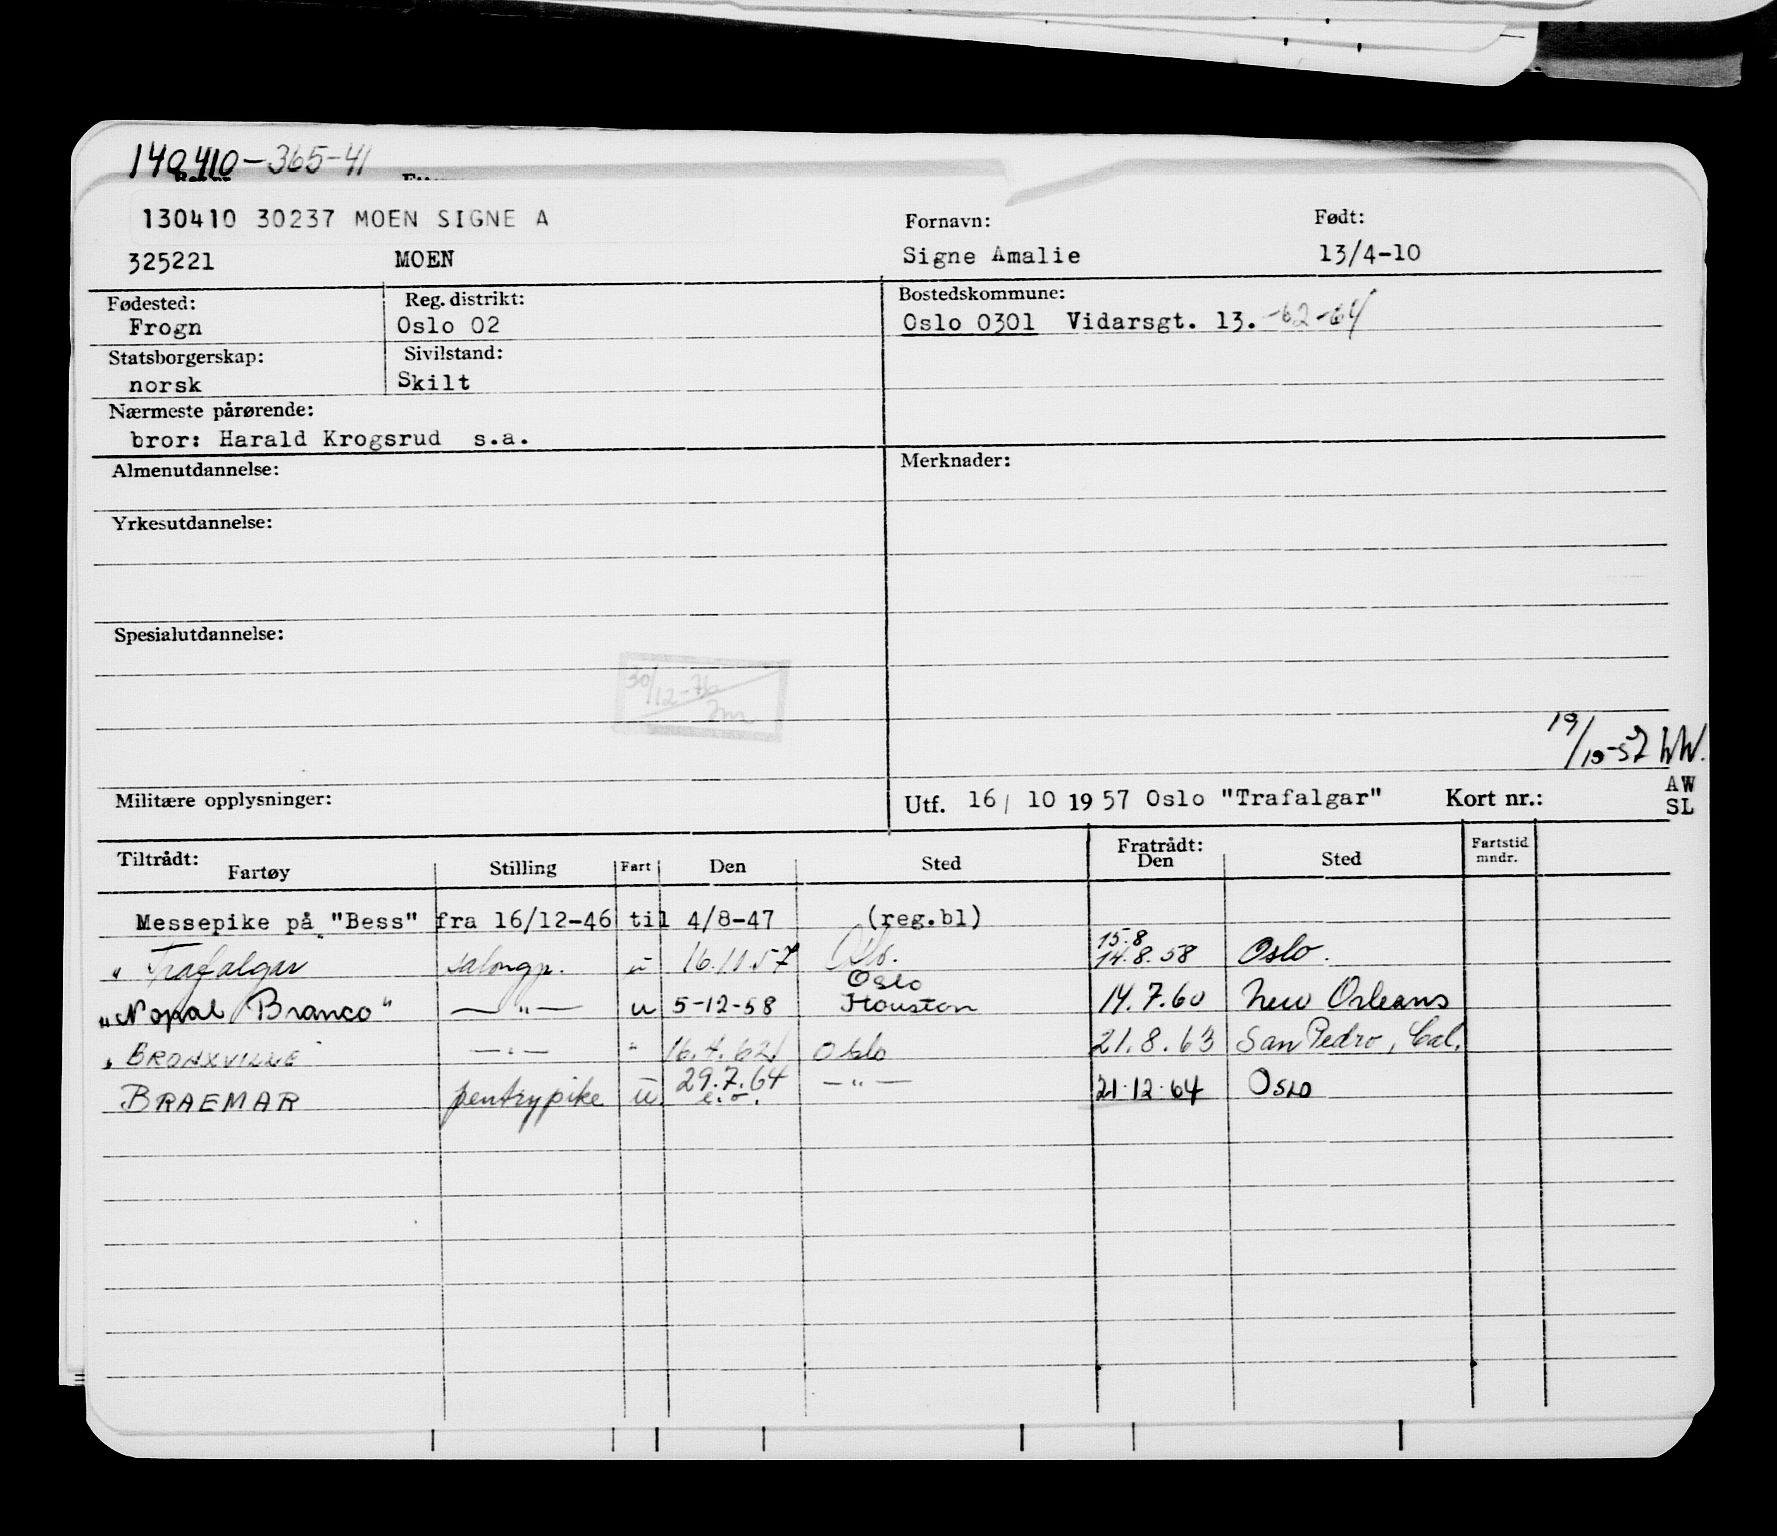 140410-365-41
130410 30237 MOEN SIGNE A
Fornavn: Født:
325221 MOEN Signe Amalie 13/4-10
Fødested: Reg. distrikt: Bostedskommune:
Frogn Oslo 02 Oslo 0301 Vidarsgt. 13. -62-64
Statsborgerskap: Sivilstand:
norsk Skilt
Nærmeste pårørende:
bror: Harald Krogsrud s.a.
Almenutdannelse: Merknader:
Yrkesutdannelse:
Spesialutdannelse:
30/12-76
19/10-57 WW.
Militære opplysninger: Utf. 16/ 10 1957 Oslo "Trafalgar" Kort nr.: AW
SL
Tiltrådt: Fratrådt: Fartstid
Fartøy Stilling Fart Den Sted Den Sted mndr.
Messepike på "Bess" fra 16/12-46 til 4/8-47 (reg.bl)
15.8
" Trafalgar salongp. u 16.11.57 Oslo. 14.8.58 Oslo.
Oslo
"Nopal Branco" — " — u 5-12-58 Houston 14.7.60 New Orleans
" BRONXVILLE — " — " 16.4.62 Oslo 21.8.63 San Pedro, Cal.
BRAEMAR pentrypike u. 29.7.64 — " — 21.12.64 OSLO
e.o.